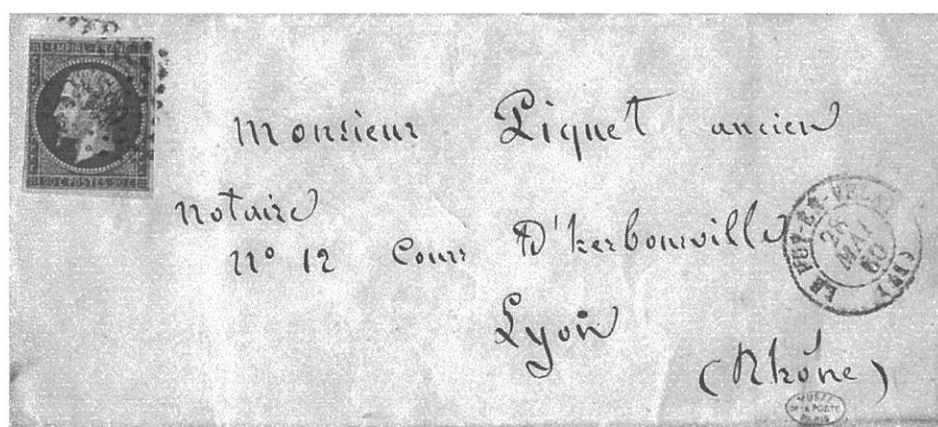 EMPIRE FRANC
20 C POSTES 20 C
Monsieur Piquet ancien
notaire
n° 12 Cour D'herbouville
Lyon
(Rhône)
LE PUY-EN-VELAY
26
MAI
60
(41)
MUSÉE
DE LA POSTE
PARIS